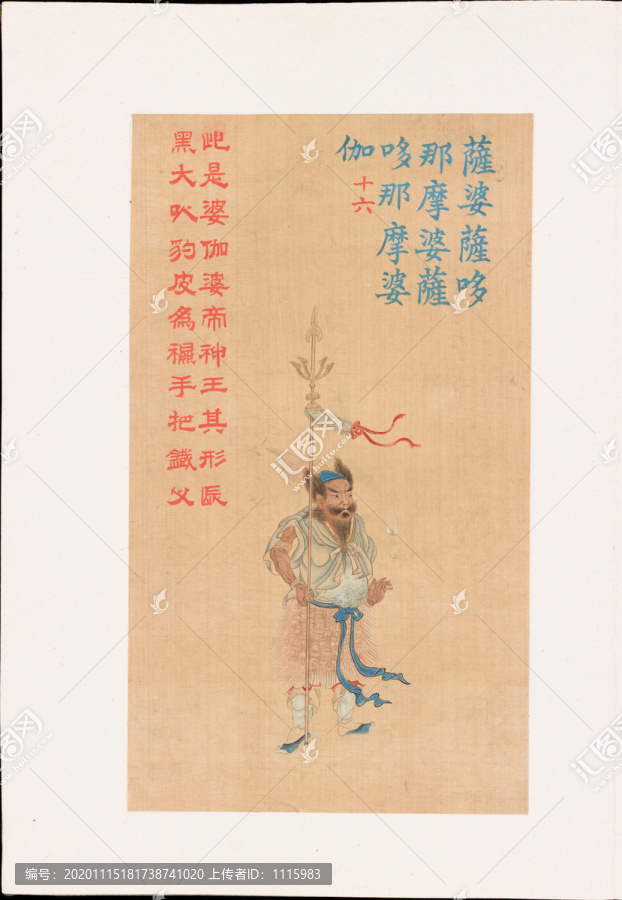 薩婆薩哆
那摩婆薩
哆那摩婆
伽
十六
此是婆伽婆帝神王其形長
黑大以豹皮為裩手把鐵叉
汇图网
www.huitu.com
编号：20201115181738741020 上传者ID：1115983